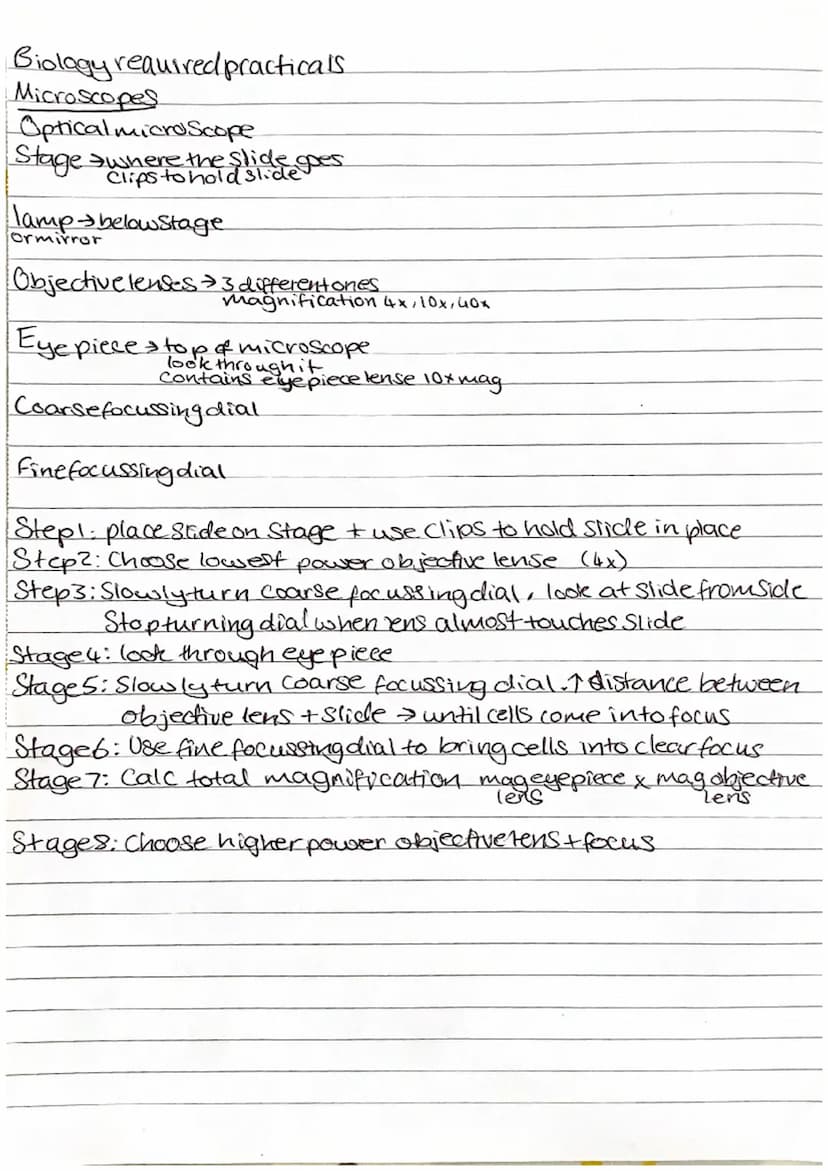 Biology required practicals
Microscopes
Optical microscope
Stage → where the slide goes
clips to hold slide
lamp → below stage
or mirror
Objective lenses → 3 different ones
magnification 4x, 10x, 40x
Eyepiece → top of microscope
look through it
contains eyepiece lense 10x mag
Coarse focussing dial
Fine focussing dial
Step1: place slide on stage + use clips to hold slide in place
Step2: Choose lowest power objective lense (4x)
Step3: Slowly turn coarse focussing dial, look at slide from side
Stop turning dial when lens almost touches slide
Stage4: look through eyepiece
Stage5: Slowly turn coarse focussing dial. ↑ distance between
objective lens + slide → until cells come into focus
Stage6: Use fine focussing dial to bring cells into clear focus
Stage7: Calc total magnification mag eyepiece x mag objective
lens lens
Stage8: Choose higher power objective lens + focus